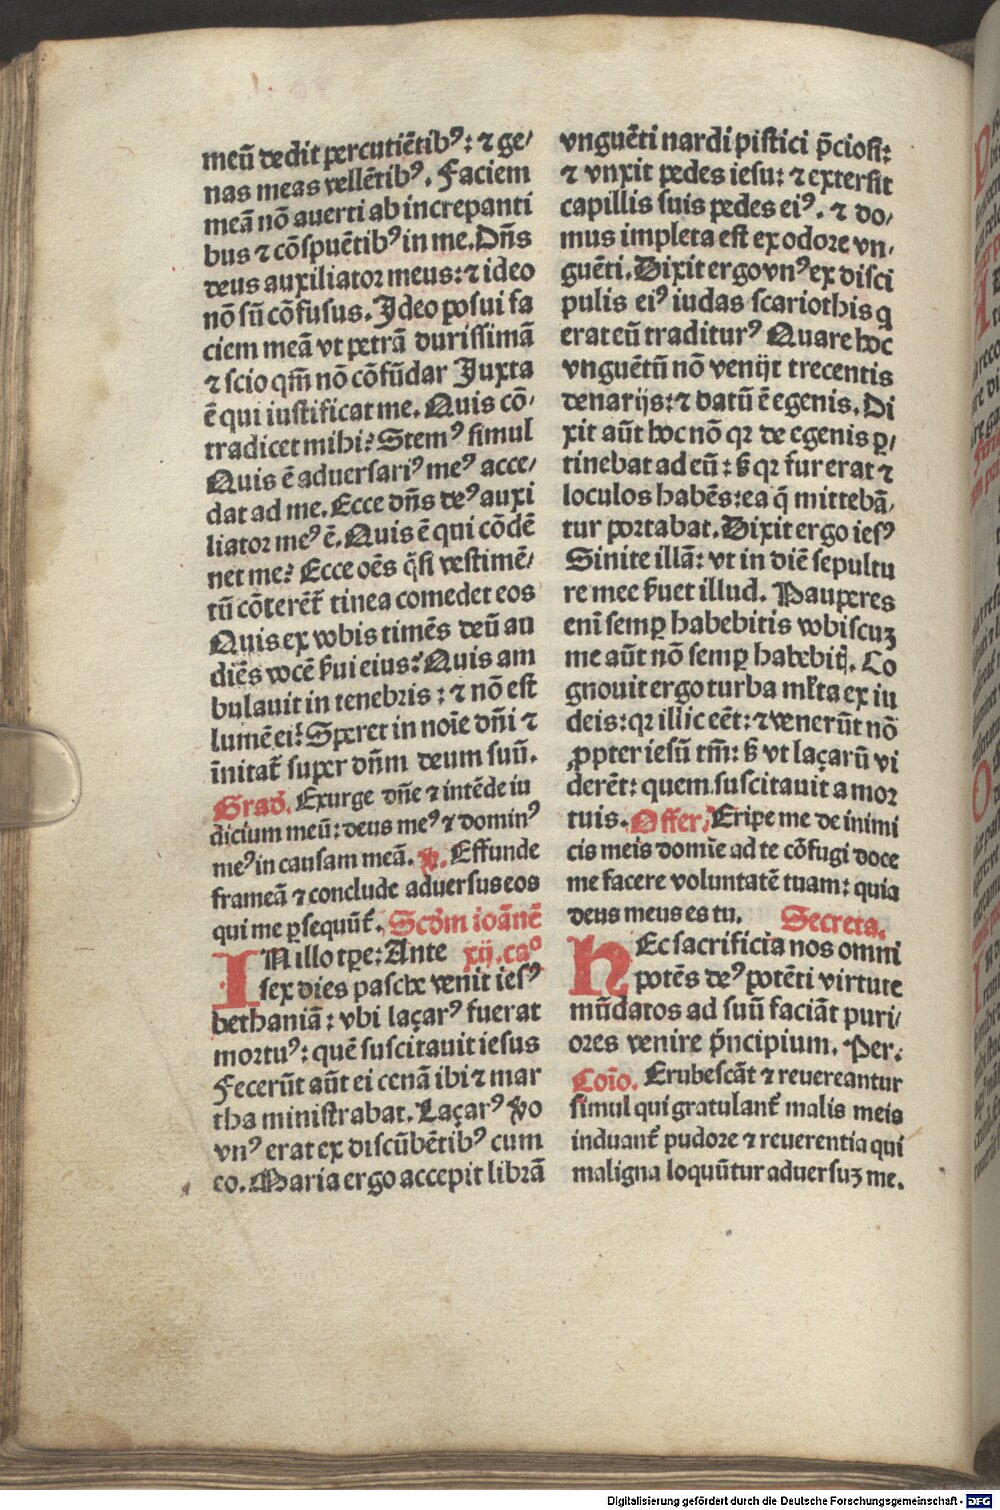 meū dedit percutiētibꝰ: ⁊ ge/
nas meas vellētibꝰ. Faciem
meā nō auerti ab increpanti
bus ⁊ cōspuētibꝰ in me. Dn̄s
deus auxiliator meus: ⁊ ideo
nō sū cōfusus. Ideo posui fa
ciem meā vt petrā durissimā
⁊ scio qm̄ nō cōfūdar Iuxta
ē qui iustificat me. Quis cō/
tradicet mihi? Stemꝰ simul
Quis ē aduersariꝰ meꝰ acce/
dat ad me. Ecce dn̄s deꝰ auxi
liator meꝰ ē. Quis ē qui cōdē
net me? Ecce oēs q̄si vestimē/
tū cōterēt̄ tinea comedet eos
Quis ex vobis timēs deū au
diēs vocē s̄ui eius? Quis am
bulauit in tenebris: ⁊ nō est
lumē ei? Speret in noīe dn̄i ⁊
īnitat̄ super dn̄m deum suū.
Grad̄. Exurge dn̄e ⁊ intēde iu
dicium meū: deus meꝰ ⁊ dominꝰ
meꝰ in causam meā. ℣. Effunde
frameā ⁊ conclude aduersus eos
qui me ꝑsequūt̄. Scd̄m ioānē
IN illo tꝑe: Ante xij. caº
sex dies pasche venit iesꝰ
bethaniā: vbi laçarꝰ fuerat
mortuꝰ: quē suscitauit iesus
Fecerūt aūt ei cenā ibi ⁊ mar
tha ministrabat. Laçarꝰ v̄o
vnꝰ erat ex discūbētibꝰ cum
eo. Maria ergo accepit librā
vnguēti nardi pistici p̄ciosi:
⁊ vnxit pedes iesu: ⁊ extersit
capillis suis pedes eiꝰ. ⁊ do/
mus impleta est ex odore vn/
guēti. Dixit ergo vnꝰ ex disci
pulis eiꝰ iudas scariothis q
erat eū traditurꝰ Quare hoc
vnguētū nō venijt trecentis
denarijs: ⁊ datū ē egenis. Di
xit aūt hoc nō qꝛ de egenis ꝑ/
tinebat ad eū: s̄ qꝛ fur erat ⁊
loculos habēs: ea q̄ mittebā/
tur portabat. Dixit ergo iesꝰ
Sinite illā: vt in diē sepultu
re mee s̄uet illud. Pauperes
enī semꝑ habebitis vobiscuꝫ
me aūt nō semꝑ habebit̄. Co
gnouit ergo turba ml̄ta ex iu
deis: qꝛ illic eēt: ⁊ venerūt nō
ꝓpter iesū tm̄: s̄ vt laçarū vi
derēt: quem suscitauit a mor
tuis. Offer/ Eripe me de inimi
cis meis domīe ad te cōfugi doce
me facere voluntatē tuam: quia
deus meus es tu. Secreta.
HEc sacrificia nos omni
potēs deꝰ potēti virtute
mūdatos ad suū faciāt puri/
ores venire p̄ncipium. Per.
Coīo. Erubescāt ⁊ reuereantur
simul qui gratulant̄ malis meis
induant̄ pudore ⁊ reuerentia qui
maligna loquūtur aduersuꝫ me.
Digitalisierung gefördert durch die Deutsche Forschungsgemeinschaft - DFG